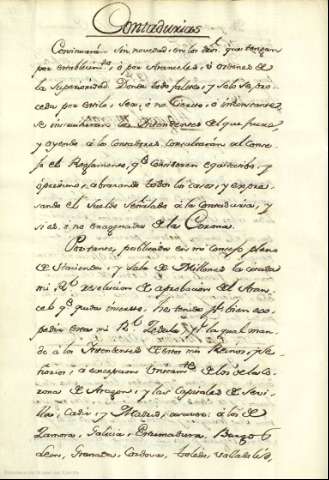 Contadurias
Continuarán sin novedad, en los dros. que tengan
por establecimto. ó por Aranceles, ú ordenes de
la Superioridad. Donde todo faltase, y solo se pro-
ceda por estilo sea, ó no escrito, ó inconstante
se instruirán los Intendentes del que fuere,
y oyendo á los Contadores, consultarán al Conse-
jo el Reglamento, qe. consideren equitativo, y
oportuno, abrazando todos los casos, y expre-
sando el sueldo señalado á la Contaduria, y
si es, o no enagenada de la Corona.
Por tanto, publicada en mi Consejo pleno
de Hacienda, y Sala de Millones la citada
mi Rl. resolucion de aprobacion del Aran-
cel qe. queda inserto, he tenido pr. bien expe-
pedir esta mi Rl. Zedula pr. la qual man-
do á los Intendentes de estos mis Reinos, y Se-
ñorios, á excepcion de los de la Co-
rona de Aragon, y las Capitales de Sevi-
lla, Cadiz, y Madrid, á los de
Zamora, Galicia, Extremadura, Burgos,
Leon, Granada, Cordova, Toledo, Valladolid,